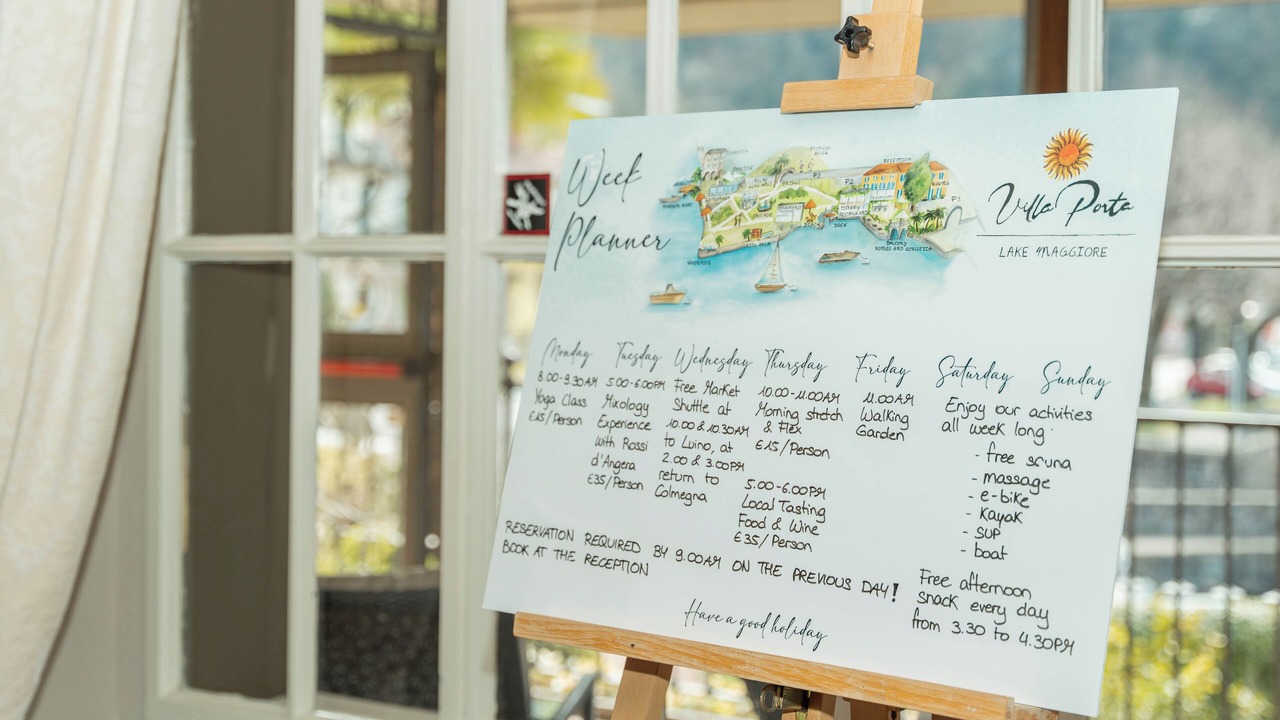 Week
Planner
RECEPTION
Villa Porta
LAKE MAGGIORE
Monday
8.00-9.30AM
Yoga Class
€15/Person
Tuesday
5.00-6.00PM
Mixology
Experience
with Rossi
d'Angera
€35/Person
Wednesday
Free Market
Shuttle at
10.00 & 10.30AM
to Luino, at
2.00 & 3.00PM
return to
Colmegna
Thursday
10.00-11.00AM
Morning stretch
& Flex
€15/Person
5.00-6.00PM
Local Tasting
Food & Wine
€35/Person
Friday
11.00AM
Walking
Garden
Saturday Sunday
Enjoy our activities
all week long
- free sauna
- massage
- e-bike
- Kayak
- SUP
- boat
Free afternoon
snack every day
from 3.30 to 4.30PM
RESERVATION REQUIRED BY 9.00AM ON THE PREVIOUS DAY!
BOOK AT THE RECEPTION
Have a good holiday